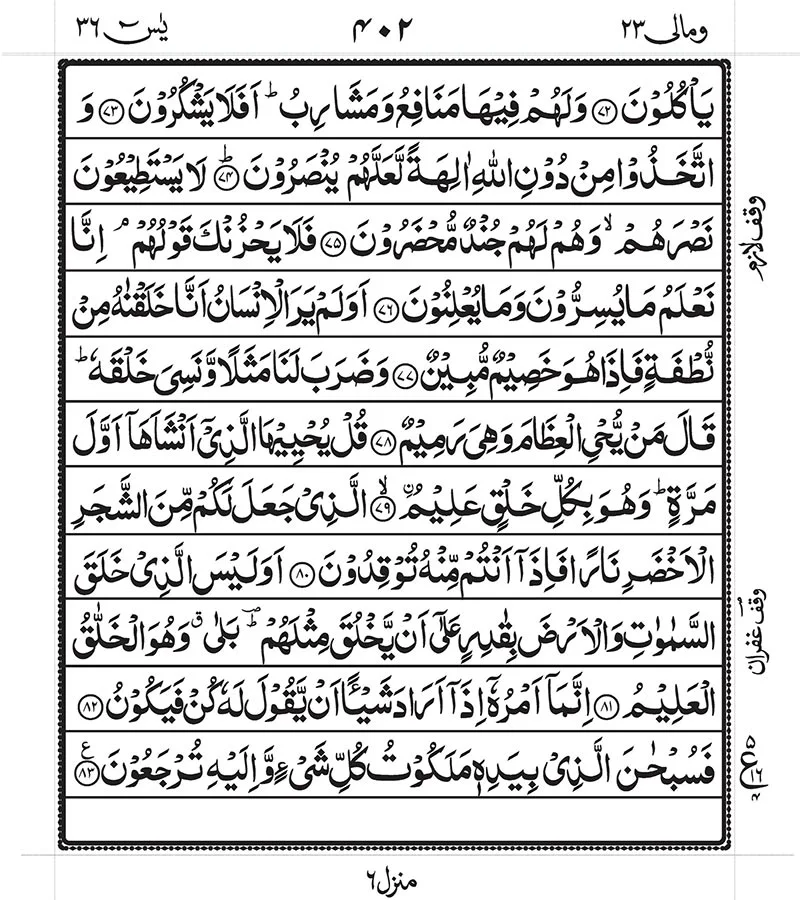 ومالی ۲۳
۴۰۲
یٰسٓ ۳۶
یَاْكُلُوْنَ ﴿۷۲﴾ وَلَهُمْ فِیْهَا مَنَافِعُ وَمَشَارِبُ ؕ اَفَلَا یَشْكُرُوْنَ ﴿۷۳﴾ وَ
اتَّخَذُوْا مِنْ دُوْنِ اللّٰهِ اٰلِهَةً لَّعَلَّهُمْ یُنْصَرُوْنَ ﴿ؕ۷۴﴾ لَا یَسْتَطِیْعُوْنَ
نَصْرَهُمْ ۙ وَهُمْ لَهُمْ جُنْدٌ مُّحْضَرُوْنَ ﴿۷۵﴾ فَلَا یَحْزُنْكَ قَوْلُهُمْ ۘ اِنَّا
نَعْلَمُ مَا یُسِرُّوْنَ وَمَا یُعْلِنُوْنَ ﴿۷۶﴾ اَوَلَمْ یَرَ الْاِنْسَانُ اَنَّا خَلَقْنٰهُ مِنْ
نُّطْفَةٍ فَاِذَا هُوَ خَصِیْمٌ مُّبِیْنٌ ﴿۷۷﴾ وَضَرَبَ لَنَا مَثَلًا وَّنَسِیَ خَلْقَهٗ ؕ
قَالَ مَنْ یُّحْیِ الْعِظَامَ وَهِیَ رَمِیْمٌ ﴿۷۸﴾ قُلْ یُحْیِیْهَا الَّذِیْۤ اَنْشَاَهَاۤ اَوَّلَ
مَرَّةٍ ؕ وَهُوَ بِكُلِّ خَلْقٍ عَلِیْمُ ۨ ﴿ۙ۷۹﴾ الَّذِیْ جَعَلَ لَكُمْ مِّنَ الشَّجَرِ
الْاَخْضَرِ نَارًا فَاِذَاۤ اَنْتُمْ مِّنْهُ تُوْقِدُوْنَ ﴿۸۰﴾ اَوَلَیْسَ الَّذِیْ خَلَقَ
السَّمٰوٰتِ وَالْاَرْضَ بِقٰدِرٍ عَلٰۤی اَنْ یَّخْلُقَ مِثْلَهُمْ ؕؔ بَلٰی ۗ وَهُوَ الْخَلّٰقُ
الْعَلِیْمُ ﴿۸۱﴾ اِنَّمَاۤ اَمْرُهٗۤ اِذَاۤ اَرَادَ شَیْـًٔا اَنْ یَّقُوْلَ لَهٗ كُنْ فَیَكُوْنُ ﴿۸۲﴾
فَسُبْحٰنَ الَّذِیْ بِیَدِهٖ مَلَكُوْتُ كُلِّ شَیْءٍ وَّاِلَیْهِ تُرْجَعُوْنَ ﴿۸۳﴾ ع
وقف لازم
وقف غفران
۵
ع ۱۶
۴
منزل ۶